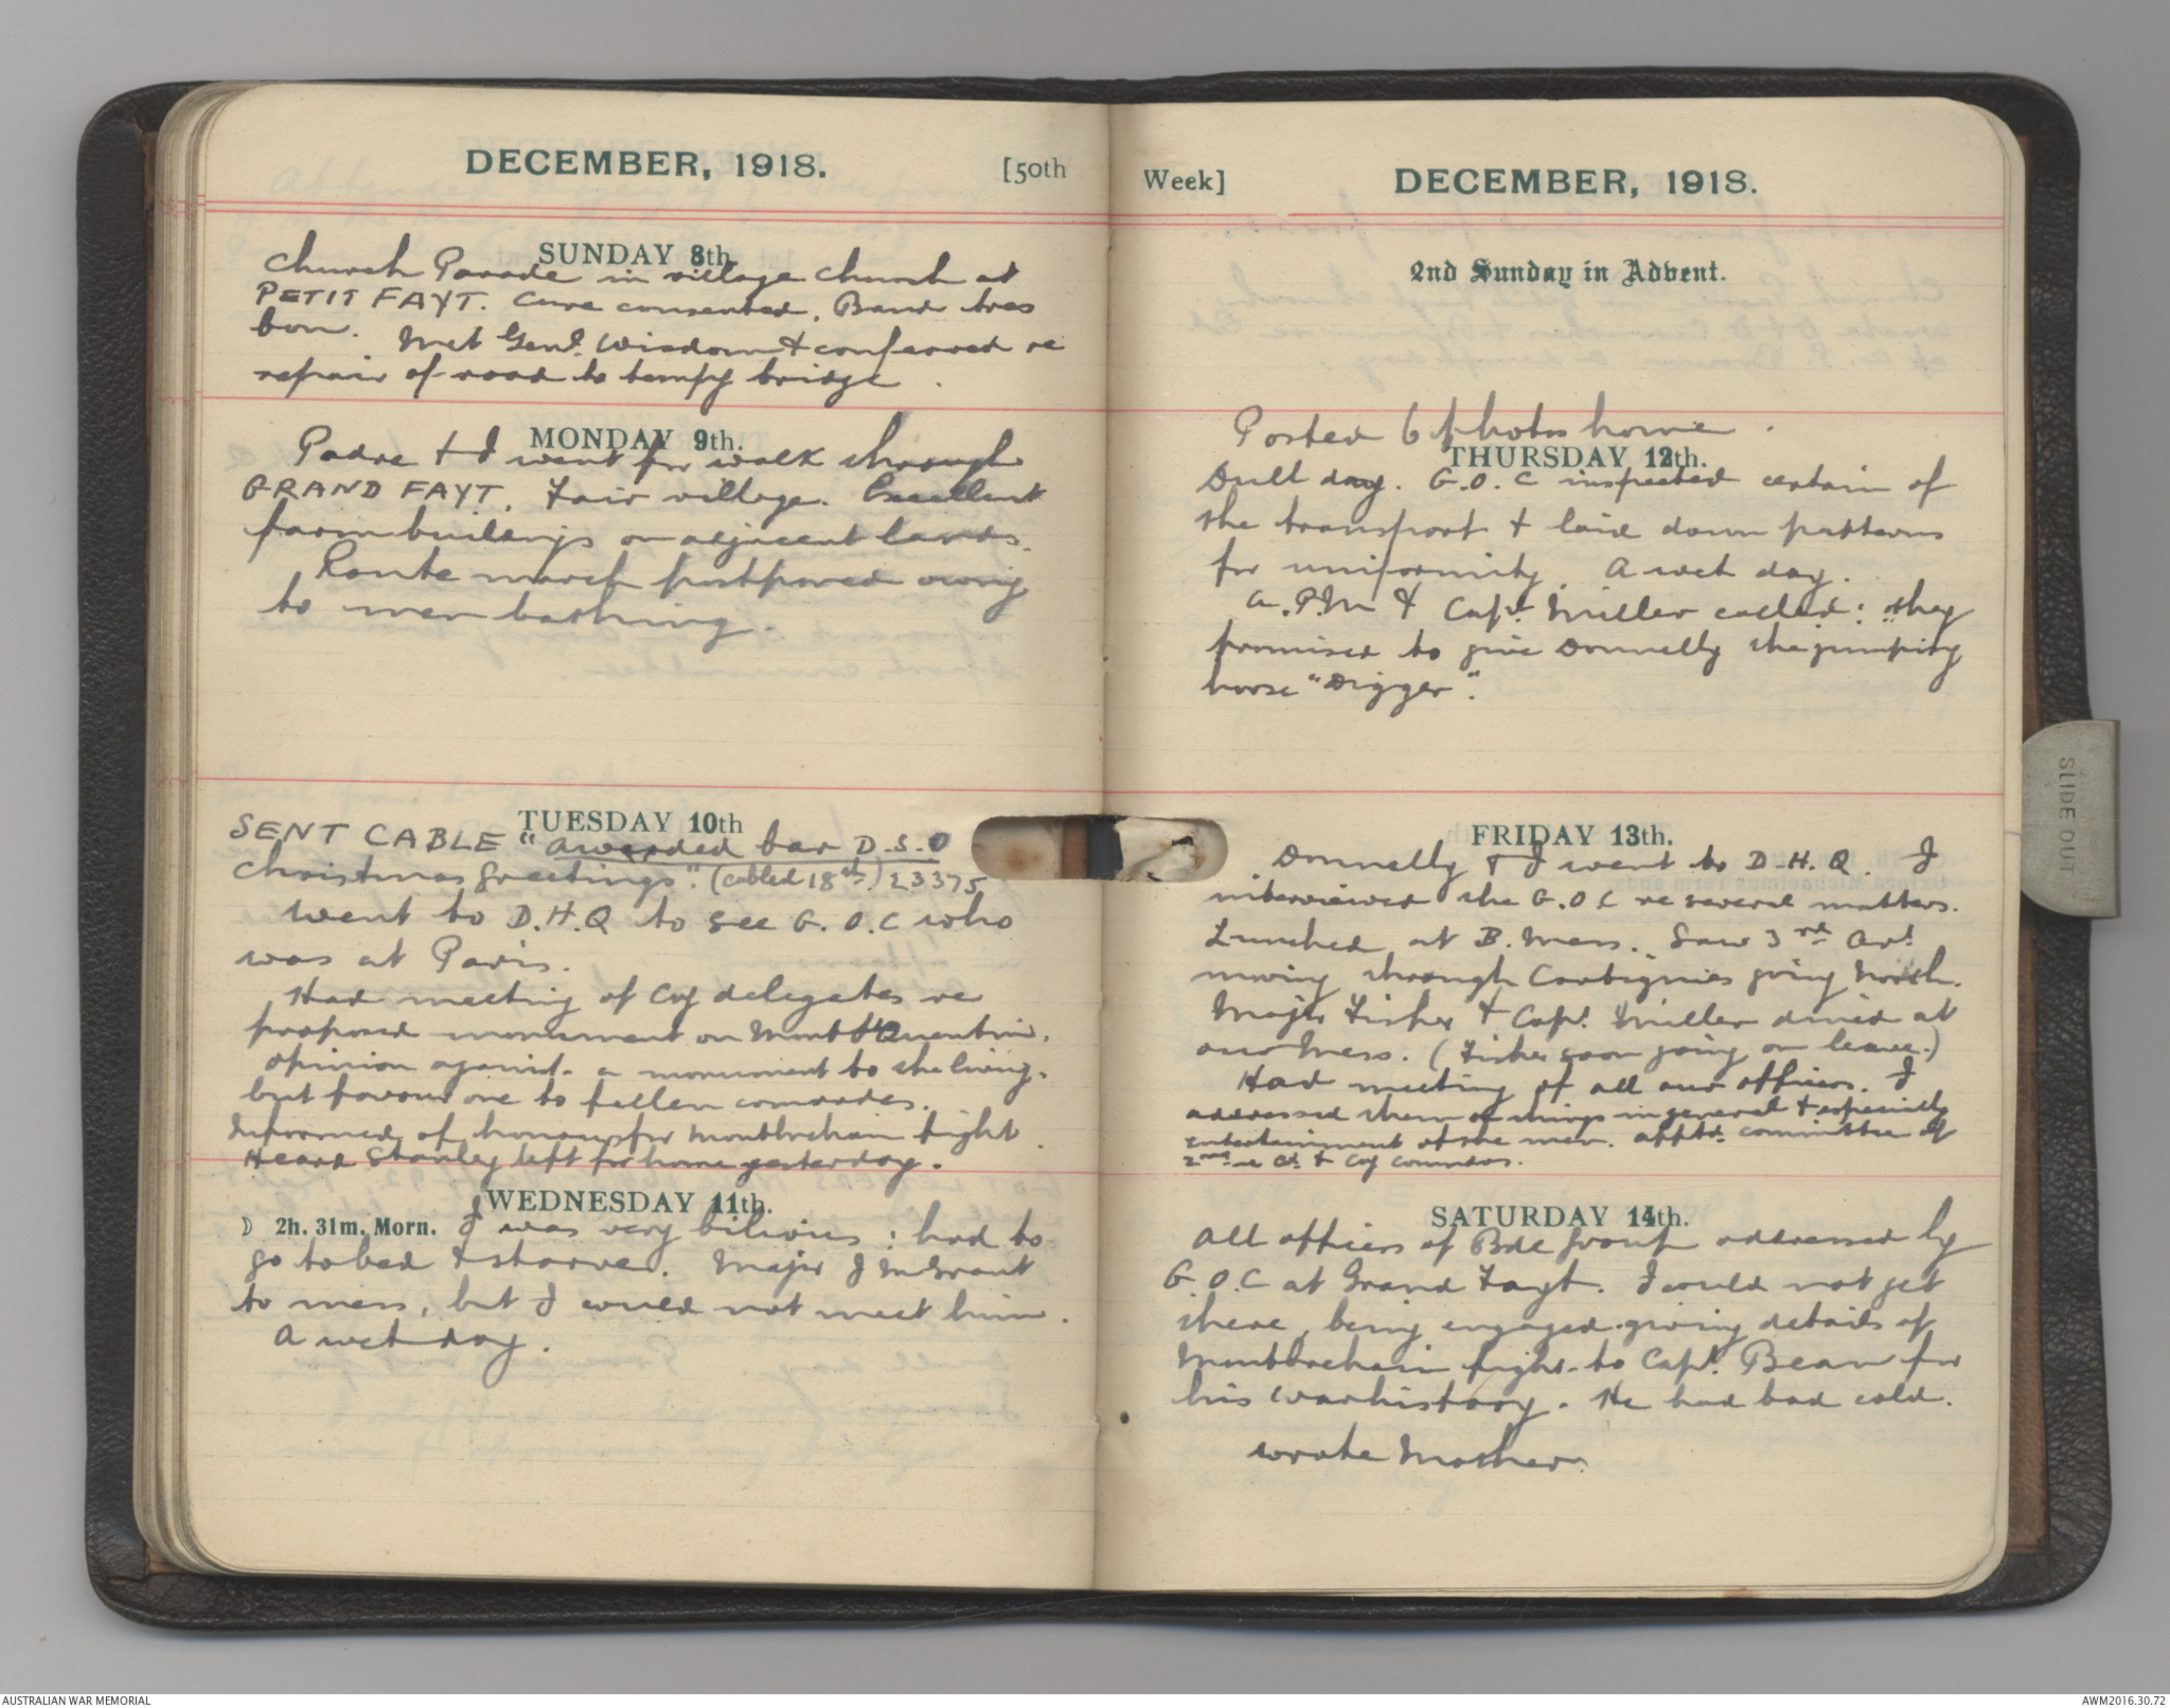 DECEMBER, 1918. [50th
SUNDAY 8th.
Church Parade in village church at
PETIT FAYT. Cure consented. Band tres
bon. Met Genl. Wisdom & conferred re
repair of road to tempy bridge.
MONDAY 9th.
Padre & I went for walk through
GRAND FAYT. Fair village. Excellent
farm buildings on adjacent lands.
Route march postponed owing
to men bathing.
TUESDAY 10th
SENT CABLE "awarded bar D.S.O
Christmas Greetings". (cabled 18th.) 23375
Went to D.H.Q to see G.O.C who
was at Paris.
Had meeting of Coy delegates re
proposed monument on Mont St Quentin.
Opinion against a monument to the living.
but favour one to fallen comrades.
Informed of honours for Montbrehain fight.
Heard Stanley left for home yesterday.
WEDNESDAY 11th.
☽ 2h. 31m. Morn. I was very bilious: had to
go to bed & starve. Major J McGrant
to mess, but I could not meet him.
A wet day.
Week] DECEMBER, 1918.
2nd Sunday in Advent.
Posted 6 photos home.
THURSDAY 12th.
Dull day. G.O.C inspected certain of
the transport & laid down patterns
for uniformity. A wet day.
A.P.M & Capt. Miller called: they
promised to give Donnelly the jumping
horse "Digger".
FRIDAY 13th.
Donnelly & I went to D.H.Q. I
interviewed the G.O.C re several matters.
Lunched at B. Mess. Saw 3rd Art
moving through Cartignies going North.
Major Fisher & Capt. Miller dined at
our Mess. (Fisher soon going on leave.)
Had meeting of all our officers. I
addressed them on things in general & especially
entertainment of the men. apptd. committee of
2nd i/c & Coy commdrs.
SATURDAY 14th.
All officers of Bde Group addressed by
G.O.C at Grand Fayt. I could not get
there, being engaged giving details of
Montbrehain fight to Capt. Bean for
his war history. He had bad cold.
Wrote Mother.
SLIDE OUT
AUSTRALIAN WAR MEMORIAL
AWM2016.30.72